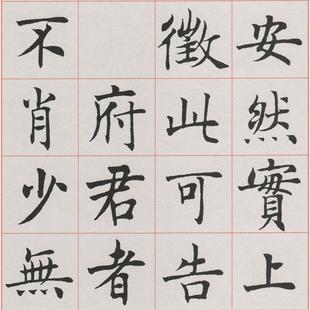 安然實上
徵此可告
府君者
不肖少無